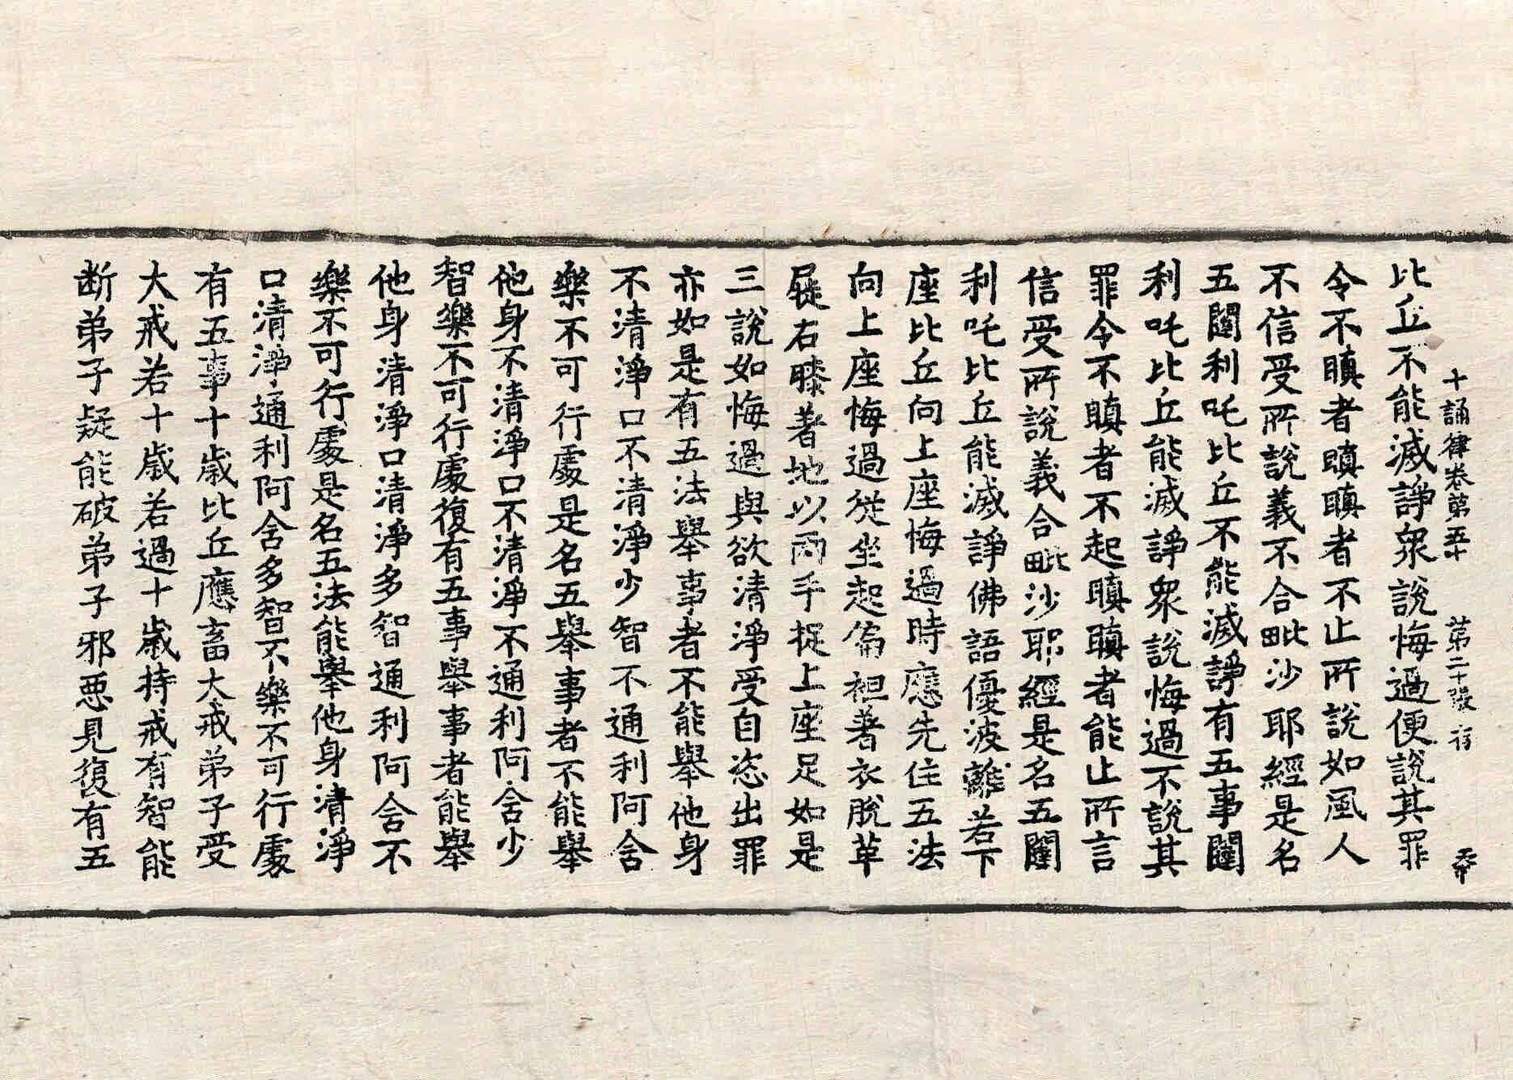 十誦律卷第五十 第二十張 宿
比丘不能滅諍眾說悔過便說其罪
令不瞋者瞋瞋者不止所說如風人
不信受所說義不合毗沙耶經是名
五闥利吒比丘不能滅諍有五事闥
利吒比丘能滅諍眾說悔過不說其
罪令不瞋者不起瞋瞋者能止所言
信受所說義合毗沙耶經是名五闥
利吒比丘能滅諍佛語優波離若下
座比丘向上座悔過時應先住五法
向上座悔過從坐起偏袒著衣脫革
屣右膝著地以兩手捉上座足如是
三說如悔過與欲清淨受自恣出罪
亦如是有五法舉事者不能舉他身
不清淨口不清淨少智不通利阿含
樂不可行處是名五舉事者不能舉
他身不清淨口不清淨不通利阿含少
智樂不可行處復有五事舉事者能舉
他身清淨口清淨多智通利阿含不
樂不可行處是名五法能舉他身清淨
口清淨通利阿含多智不樂不可行處
有五事十歲比丘應畜大戒弟子受
大戒若十歲若過十歲持戒有智能
断弟子疑能破弟子邪惡見復有五